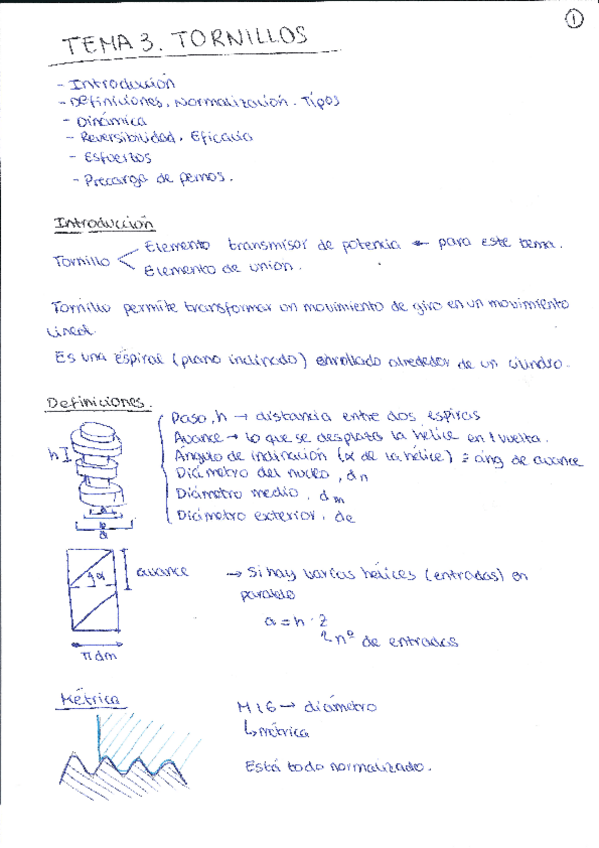 1
TEMA 3. TORNILLOS
- Introducción
- Definiciones, Normalización. Tipos
- Dinámica
- Reversibilidad. Eficacia
- Esfuerzos
- Precarga de pernos.
Introducción
Tornillo < Elemento transmisor de potencia ← para este tema.
Elemento de unión.
Tornillo permite transformar un movimiento de giro en un movimiento
lineal.
Es una espiral (plano inclinado) enrollado alrededor de un cilindro.
Definiciones.
Paso, h → distancia entre dos espiras
Avance → lo que se desplaza la hélice en 1 vuelta.
Ángulo de inclinación (α de la hélice) = ang de avance
Diámetro del nucleo, dn
Diámetro medio, dm
Diámetro exterior, de
h
α
avance
→ Si hay varias hélices (entradas) en
paralelo
a = h · z
nº de entradas
π dm
Métrica
M16 → diámetro
↳ métrica
Está todo normalizado.